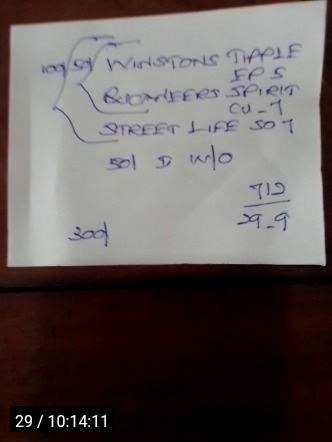 100/ 50/ WINSTONS TIPPLE
EPS
BUCANEERS SPIRIT
CU-7
STREET LIFE SO7
50/ D W/O
712
29-9
300/
29 / 10:14:11